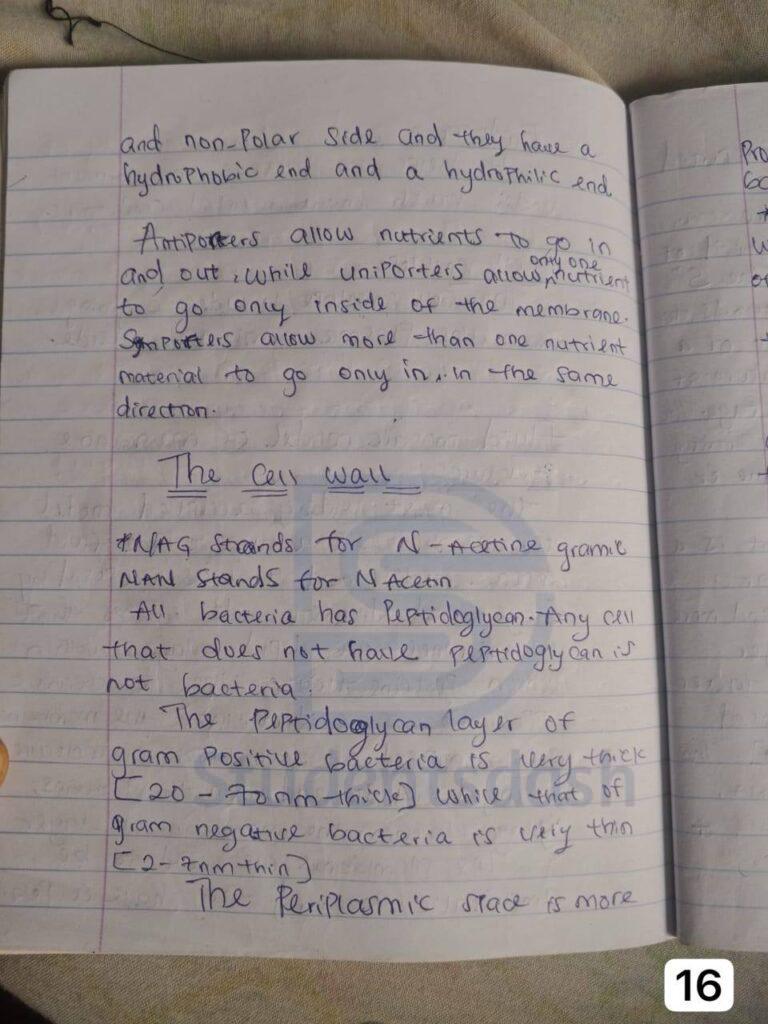 and non-Polar Side and they have a
hydroPhobic end and a hydroPhilic end
Antiporters allow nutrients to go in
and out, while uniporters allow only one nutrient
to go only inside of the membrane.
Symporters allow more than one nutrient
material to go only in, in the same
direction.
The Cell wall
*NAG Strands for N-Acetine gramic
NAN Stands for N Acetin
All bacteria has Peptidoglycan. Any cell
that does not have peptidoglycan is
not bacteria.
The Peptidoglycan layer of
gram Positive bacteria is very thick
[20-70nm thick] while that of
gram negative bacteria is very thin
[2-7nm thin]
The Periplasmic space is more
Studentsdash
16
Pro